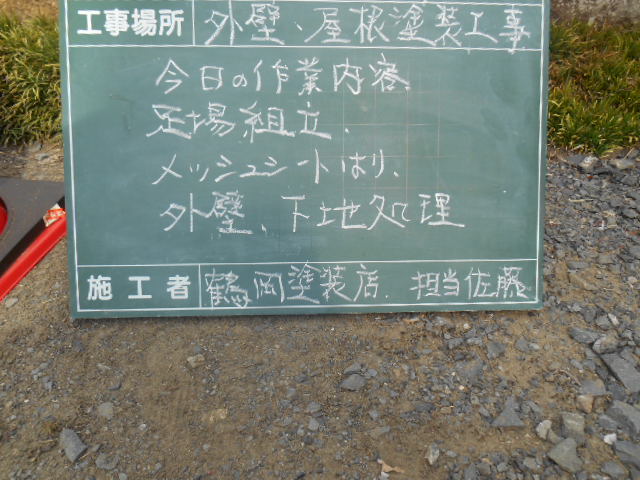 工事場所 外壁、屋根塗装工事
今日の作業内容、
足場組立、
メッシュシートはり、
外壁、下地処理
施工者 鶴岡塗装店、担当佐藤